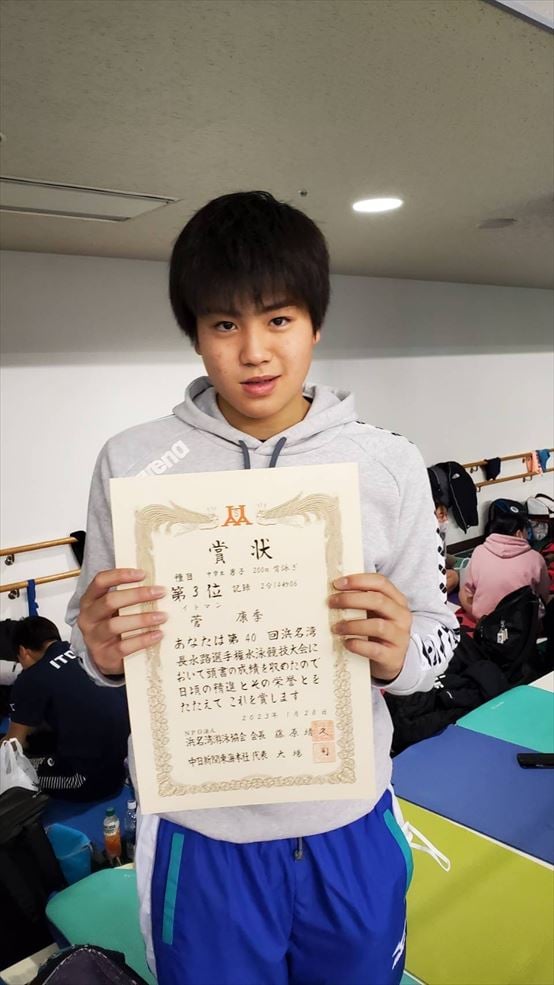 arena
賞状
種目 中学生 男子 200m 背泳ぎ
第3位 記録 2分14秒06
イトマン
菅 康季
あなたは第40回浜名湾
長水路選手権水泳競技大会に
おいて頭書の成績を収めたので
日頃の精進とその栄誉とを
たたえてこれを賞します
2023年1月28日
NPO法人
浜名湾游泳協会 会長 藤原靖久
中日新聞東海本社 代表 大場 司